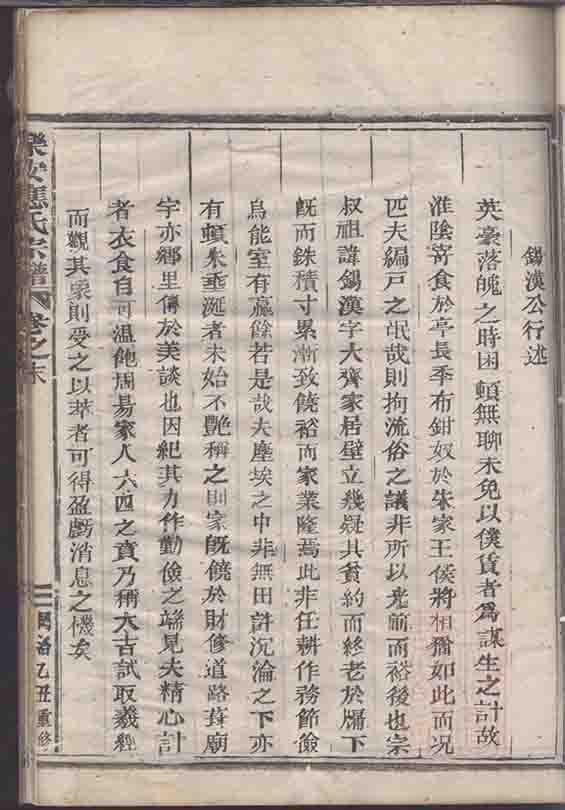 錫漢公行述
英豪落魄之時困頓無聊未免以僕賃者爲謀生之計故
淮陰寄食於亭長季布鉗奴於朱家王侯將相猶如此而况
匹夫編戶之氓哉則拘流俗之議非所以光前而裕後也宗
叔祖諱錫漢字大齊家居壁立幾疑其貧約而終老於牖下
旣而銖積寸累漸致饒裕而家業隆焉此非任耕作務節儉
烏能室有贏餘若是哉夫塵埃之中非無田訐沉淪之下亦
有頓朱垂涎者未始不艷稱之則家旣饒於財修道路葺廟
宇亦鄉里傳於美談也因紀其力作勤儉之端見夫精心計
者衣食自可溫飽周易家人六四之賁乃稱大吉試取羲經
而觀其彖則受之以萃者可得盈虧消息之機矣
樂安應氏宗譜 卷之末
乙丑重修